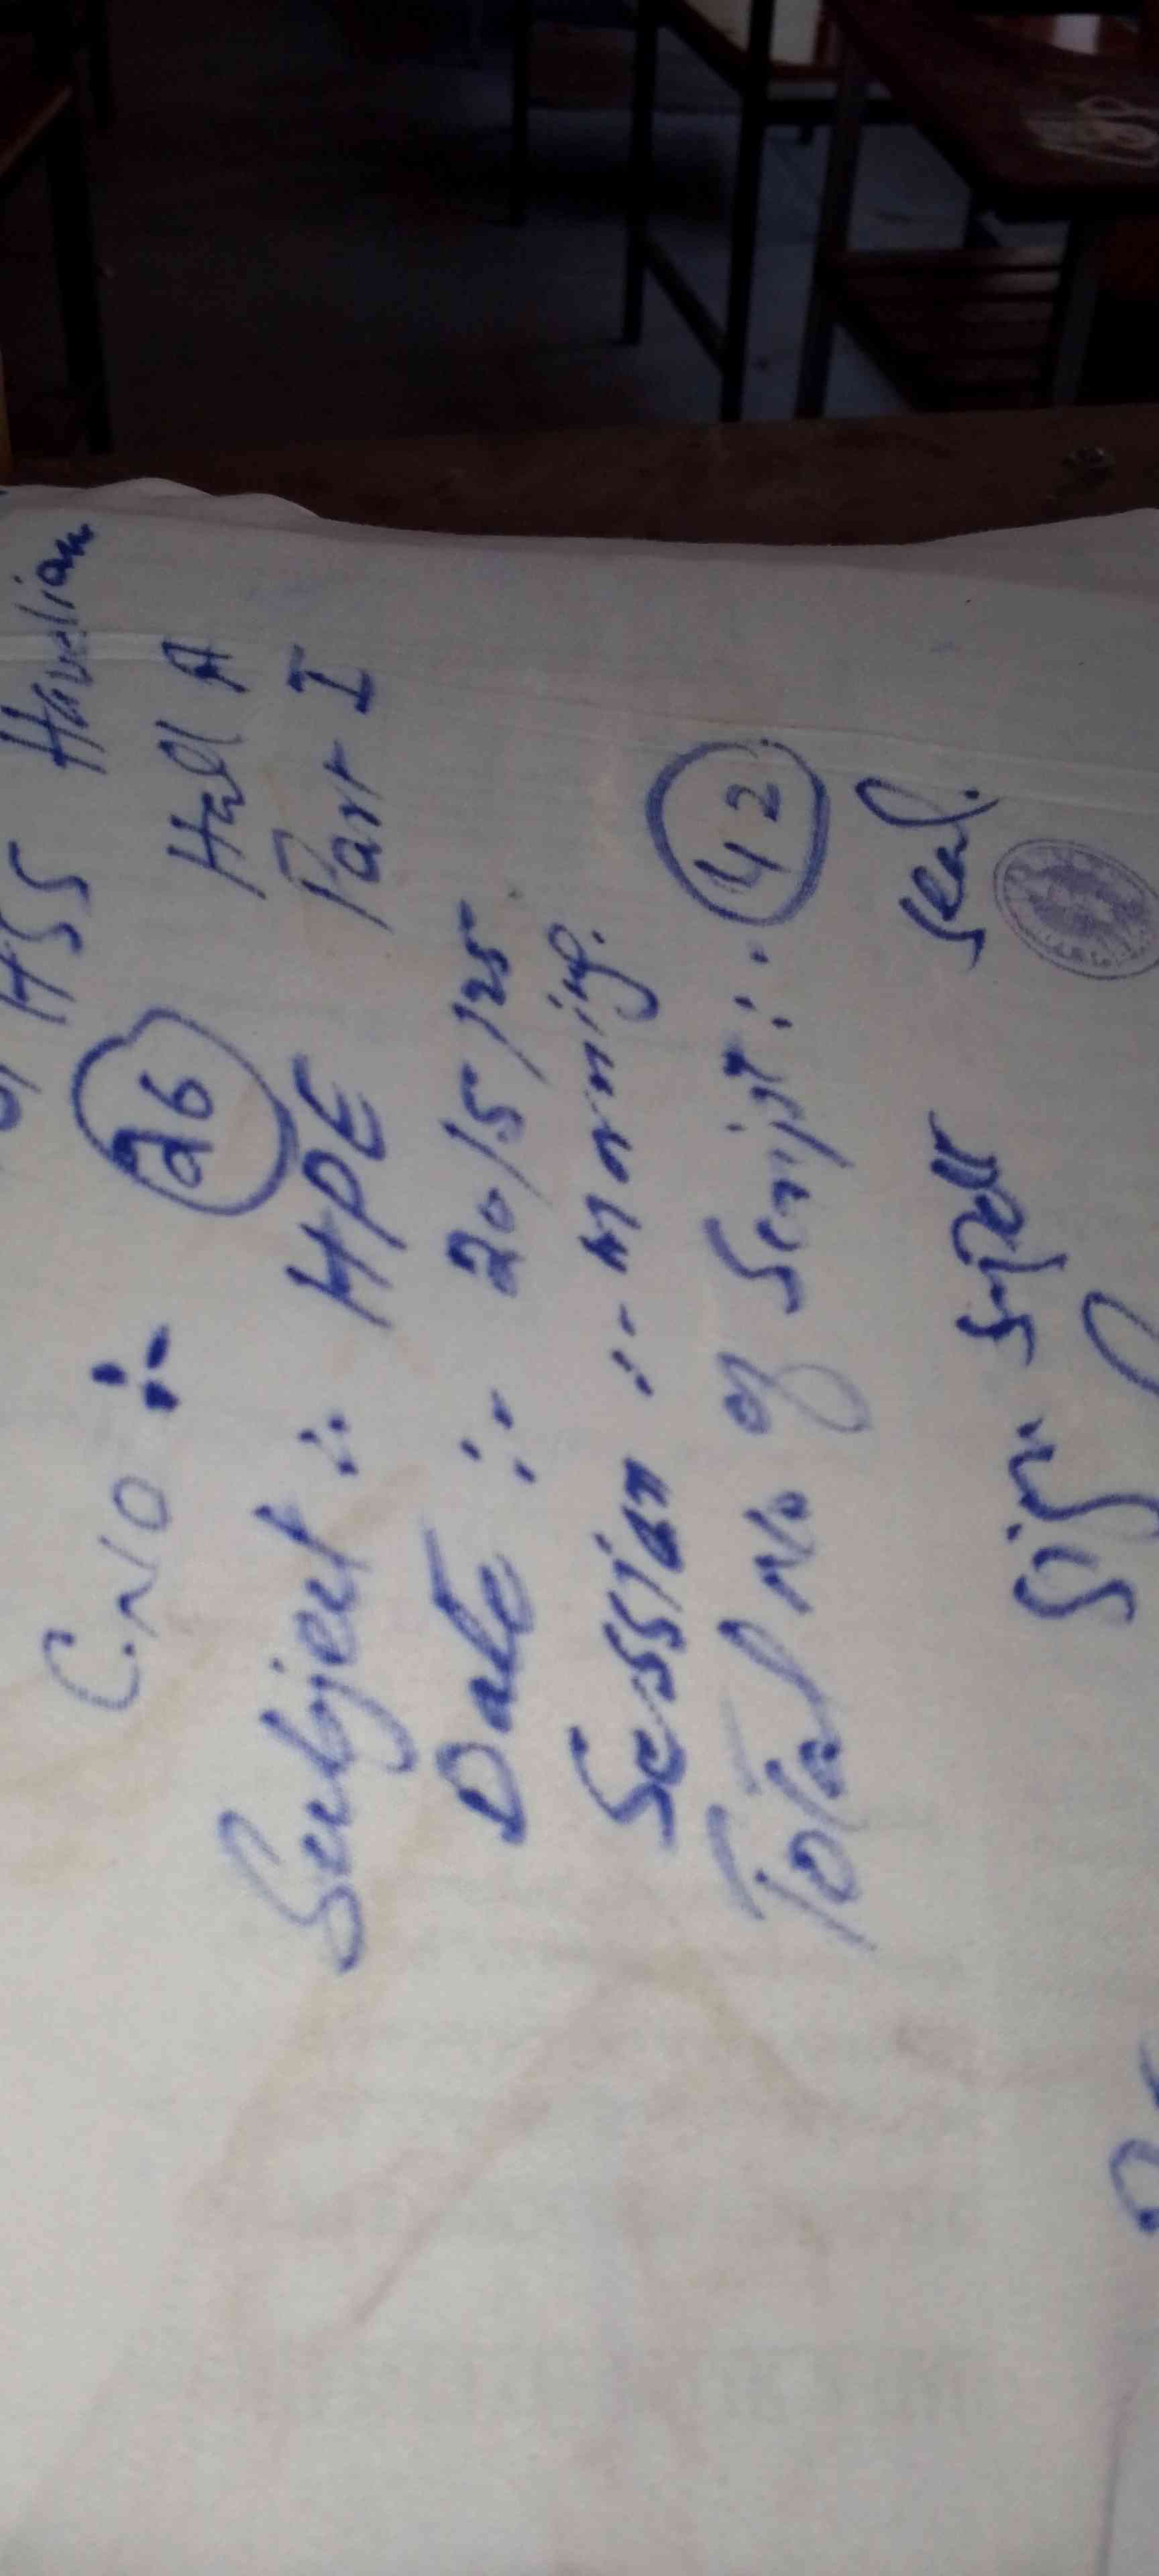 HSS Havelian
C.NO : 26 Hall A
Subject : HPE Part I
Date : 20/5/25
Session : Morning.
Total No of Script : 42
Sig: Suptt Seal.